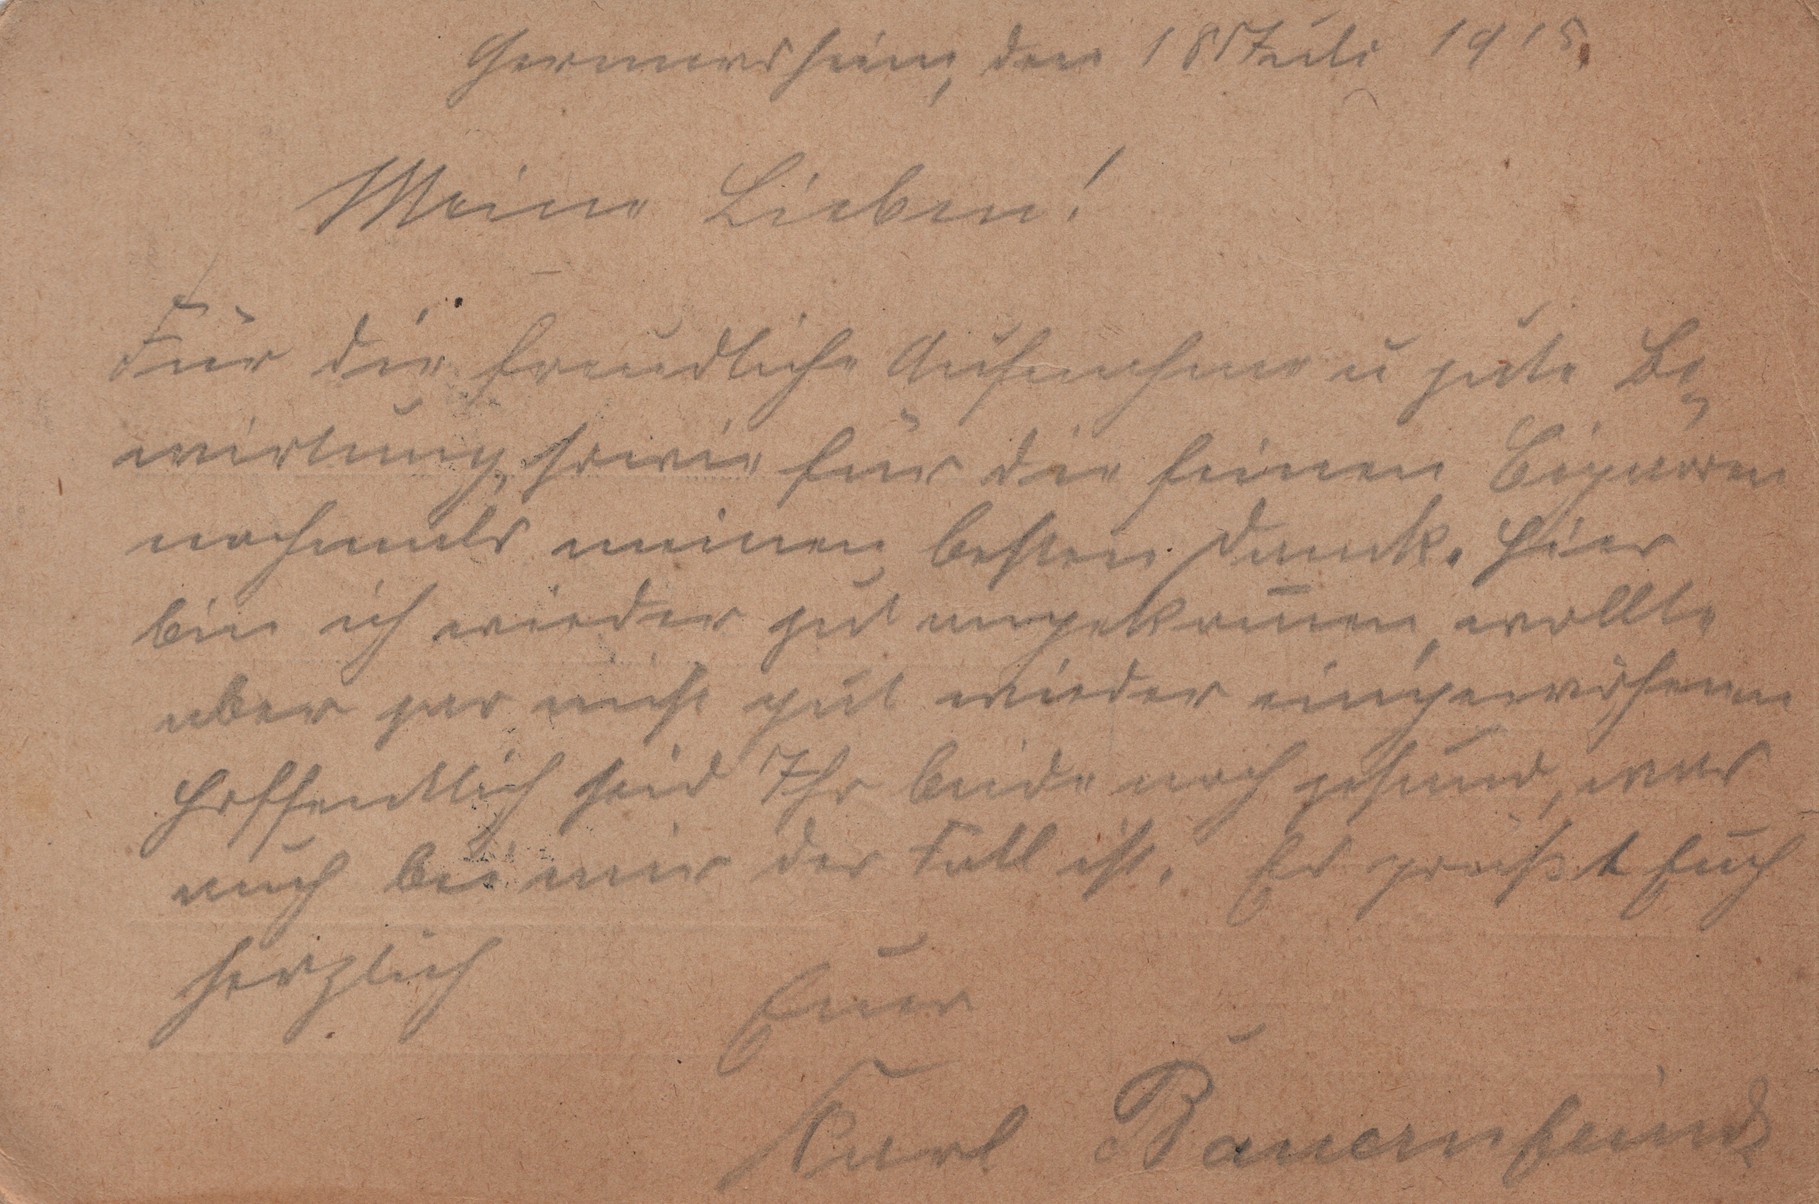 Germersheim, den 18 Juli 1915.
Meine Lieben!
Für die freundliche Aufnahme u gute Be-
wirtung, sowie für die feinen Cigarren
nochmals meinen besten Dank. Hier
bin ich wieder gut angekom̅en, wollte
aber gar nicht gut wieder eingewöhnen
Hoffentlich seid Ihr beide noch gesund, was
auch bei mir der Fall ist. Es grüßt Euch
herzlich
Euer
Karl Bauernfeind